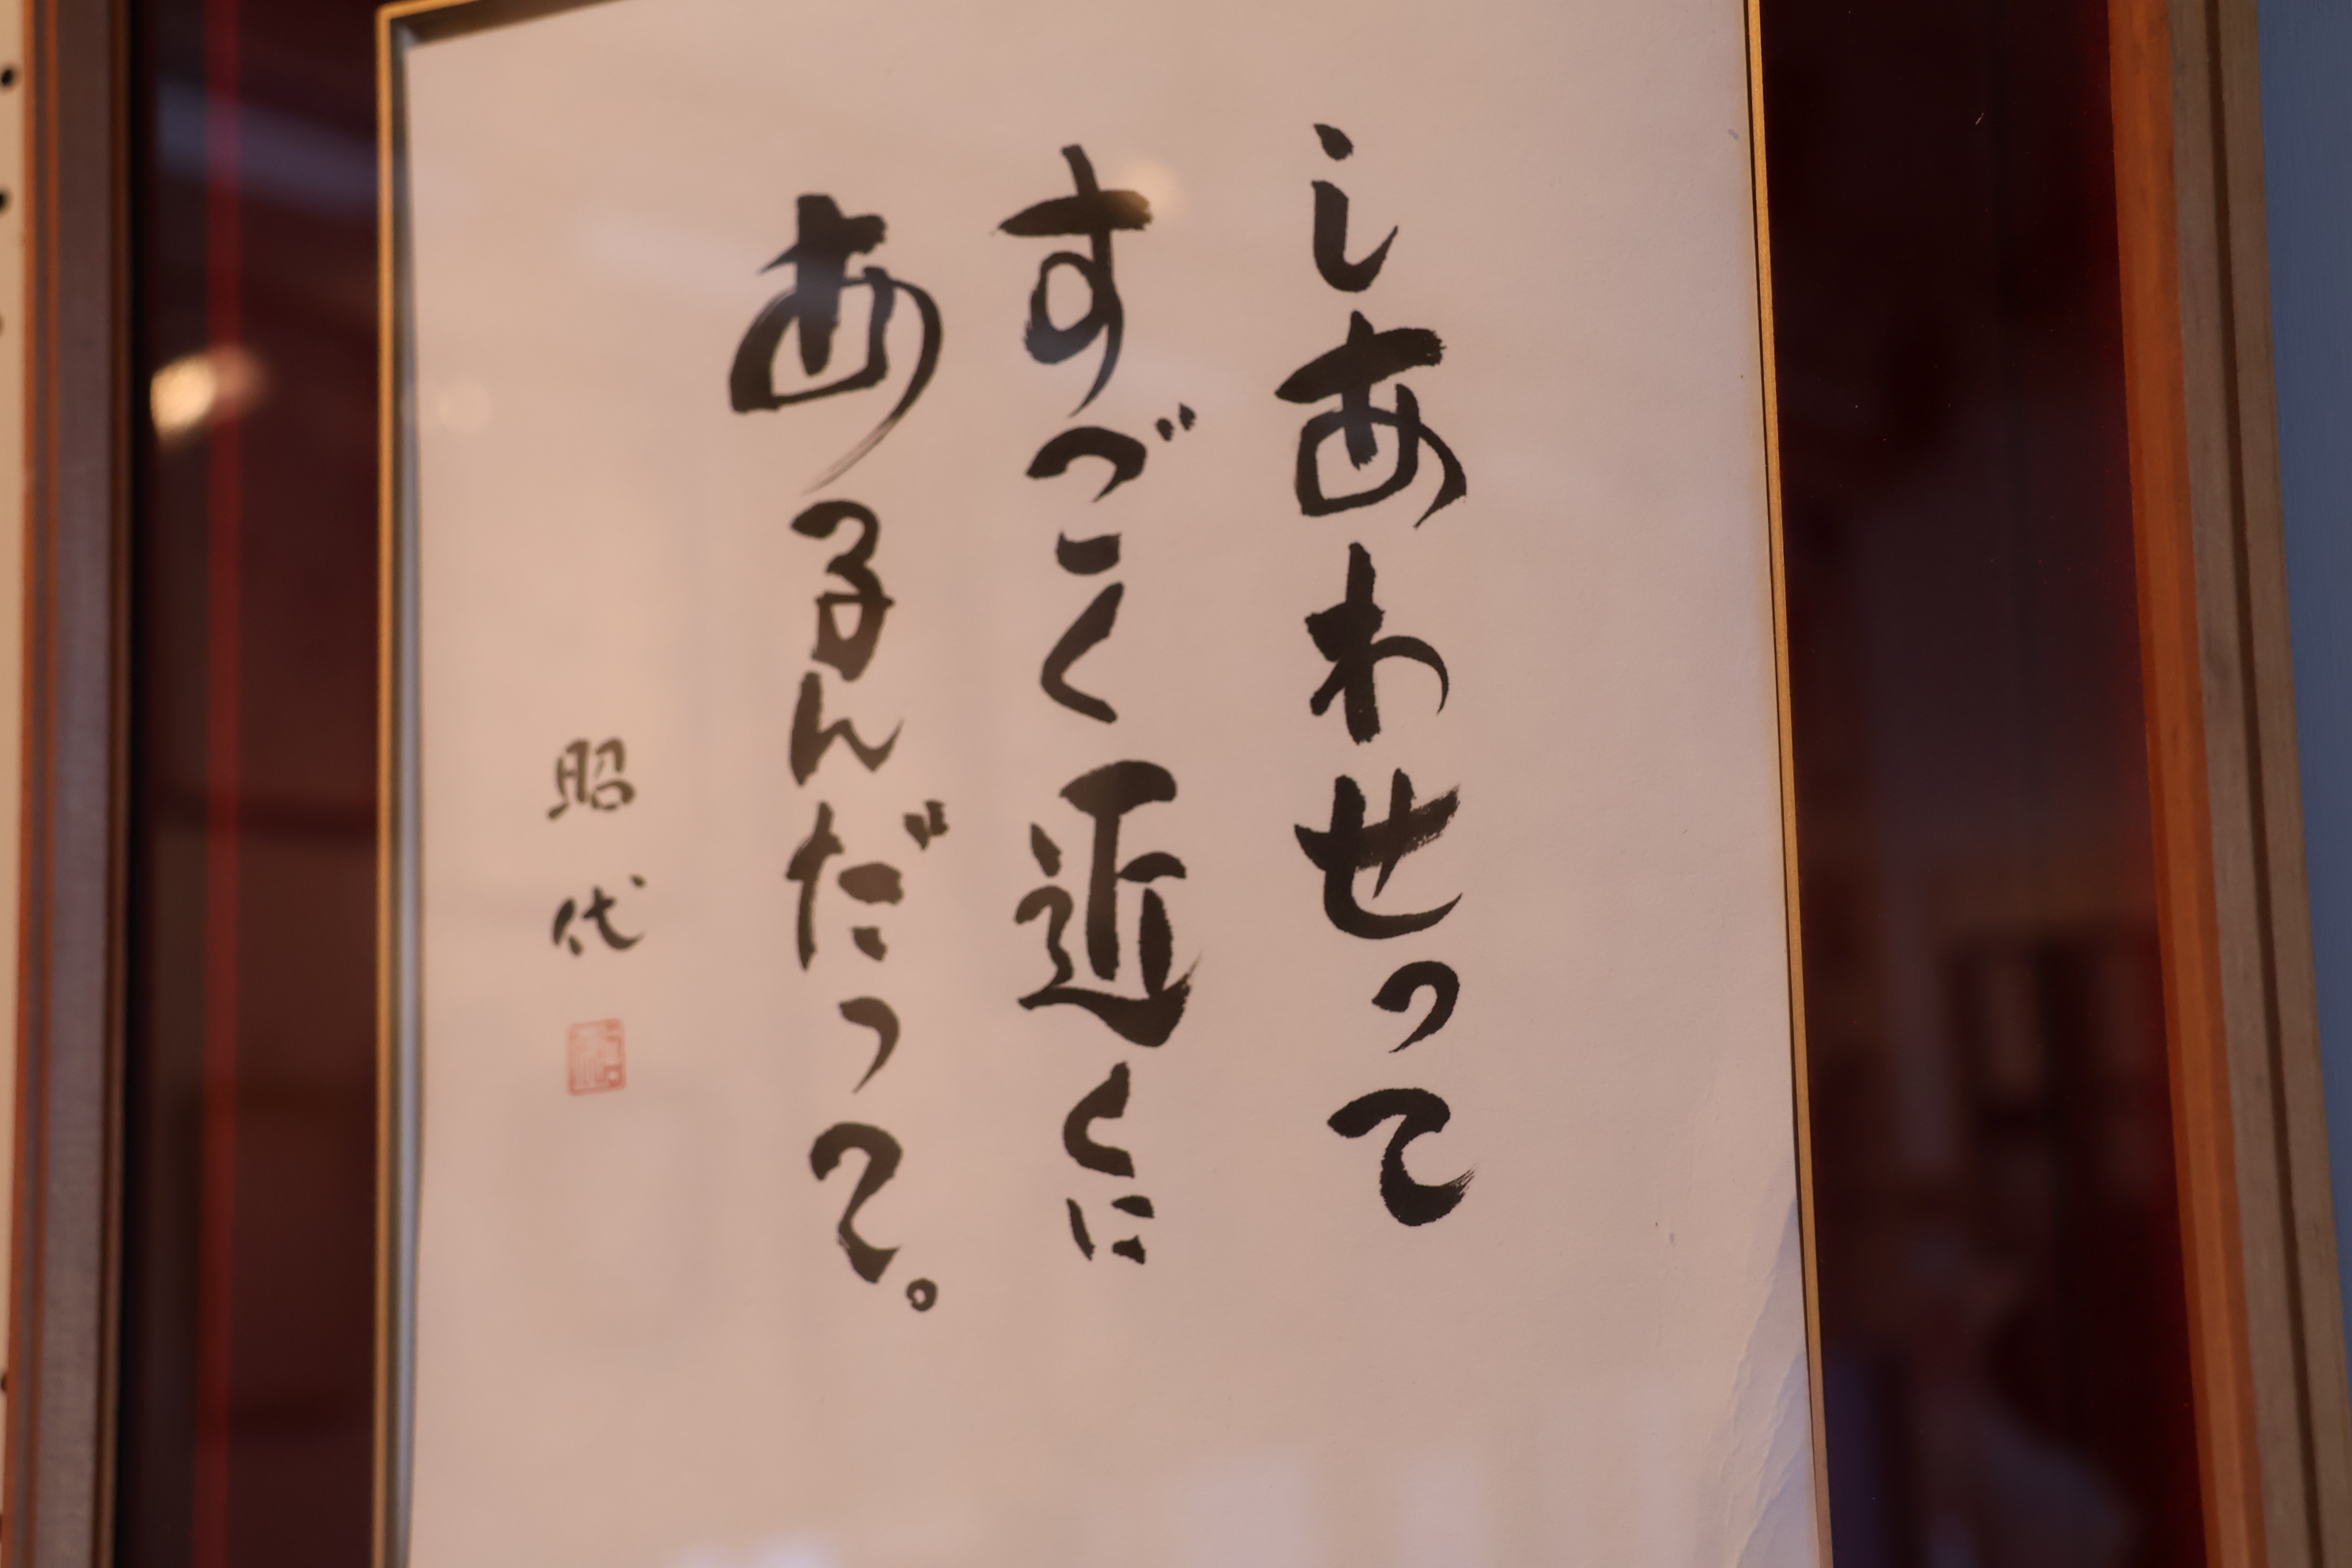 しあわせって
すごく近くに
あるんだって。
昭代